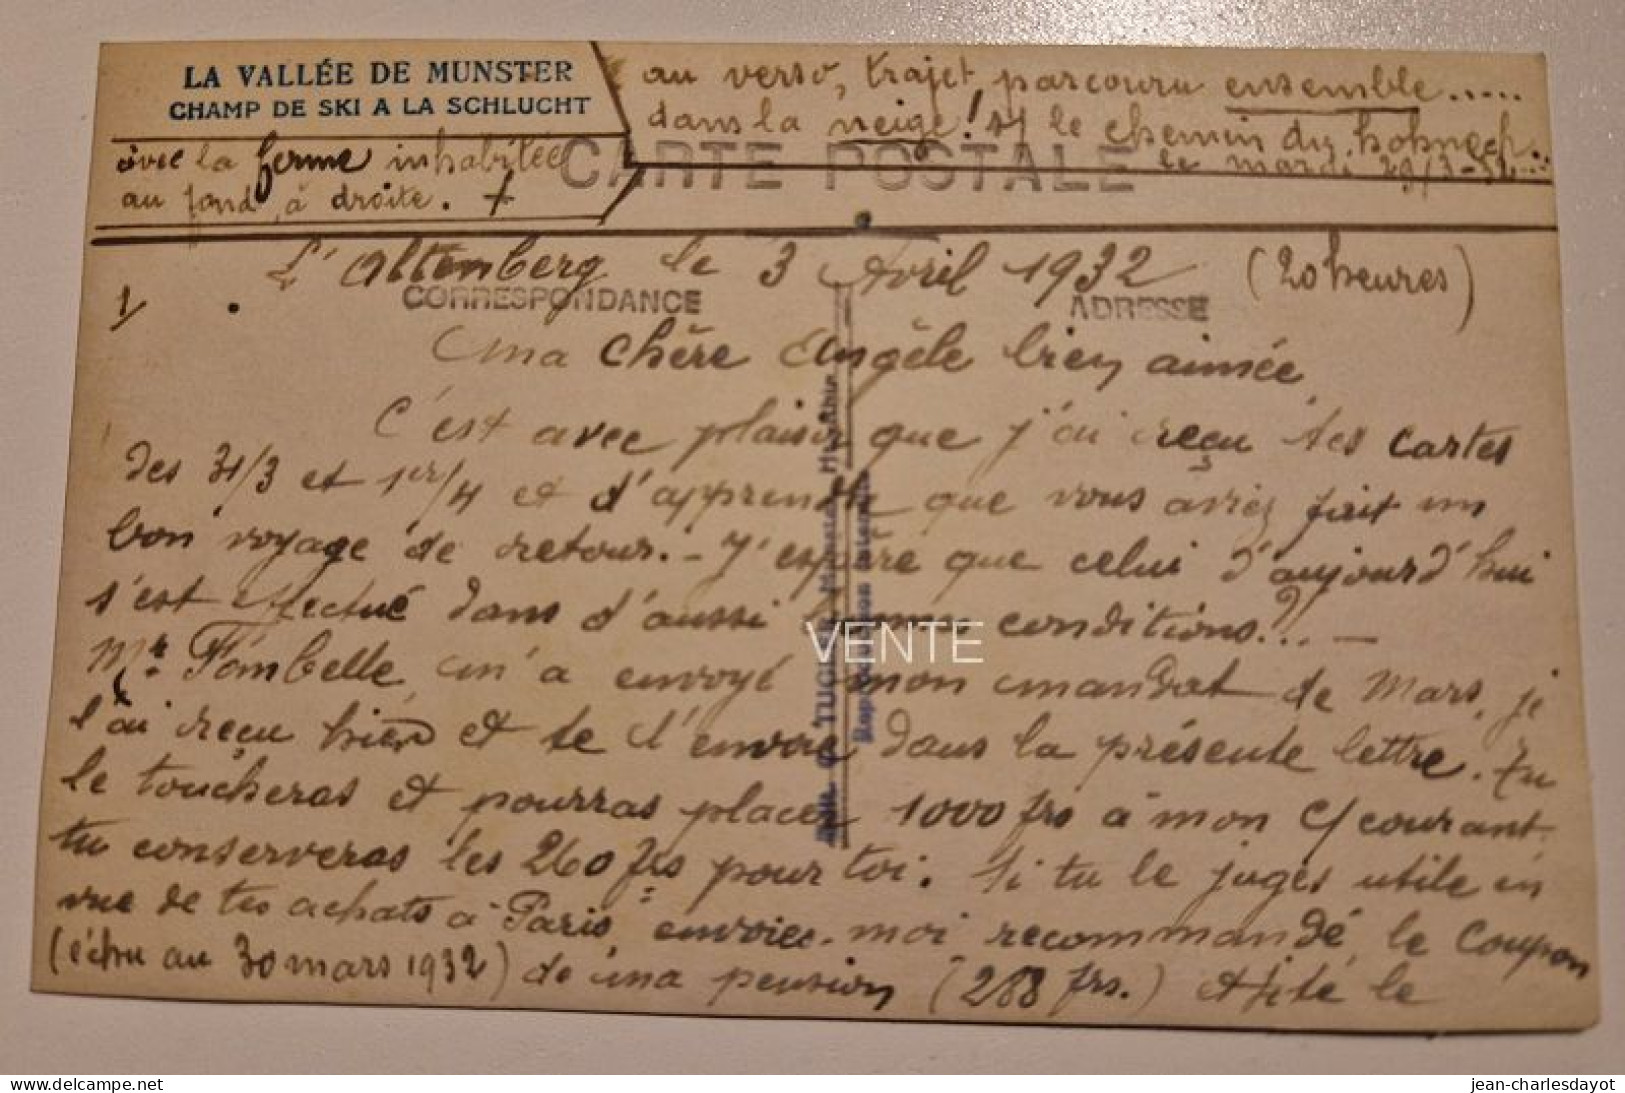 LA VALLÉE DE MUNSTER
CHAMP DE SKI A LA SCHLUCHT
avec la ferme inhabitée
au fond, à droite. +
au verso, trajet, parcouru ensemble.....
dans la neige! s/ le chemin du hohneck
le mardi 29/3-32...
CARTE POSTALE
L'Altenberg le 3 Avril 1932 (20 heures)
1/
CORRESPONDANCE
ADRESSE
Ma chère Angèle bien aimée,
C'est avec plaisir que j'ai reçu tes cartes
des 31/3 et 1er/4 et d'apprendre que vous aviez fait un
bon voyage de retour. - J'espère que celui d'aujourd'hui
s'est effectué dans d'aussi bonnes conditions?.. -
Mr. Fombelle, m'a envoyé mon mandat de Mars, je
l'ai reçu hier et te l'envoie dans la présente lettre. Tu
le toucheras et pourras placer 1000 frs à mon c/courant.
tu conserveras les 260 frs pour toi. Si tu le juges utile en
vue de tes achats à Paris, envoie-moi recommandé, le Coupon
(échu au 30 mars 1932) de ma pension (288 frs.) et té le
VENTE
delcampe.net
jean-charlesdayot